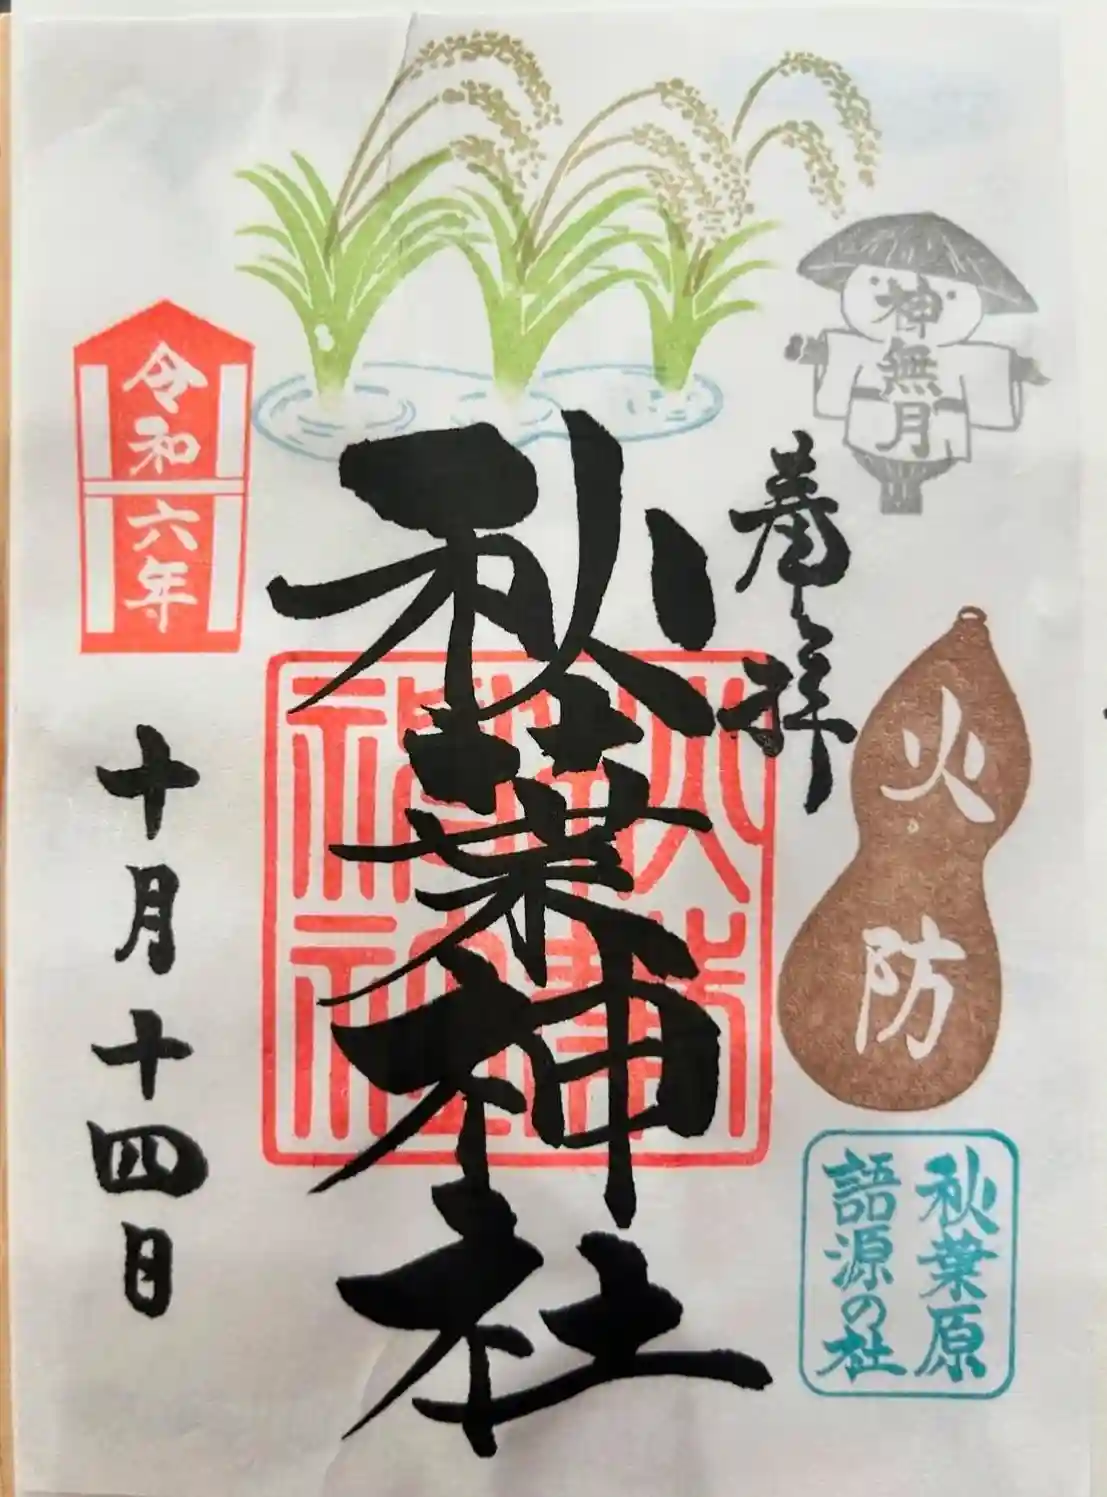 神無月
奉拝
火防
秋葉原
語源の社
秋葉神社
秋葉
神社
令和六年
十月十四日